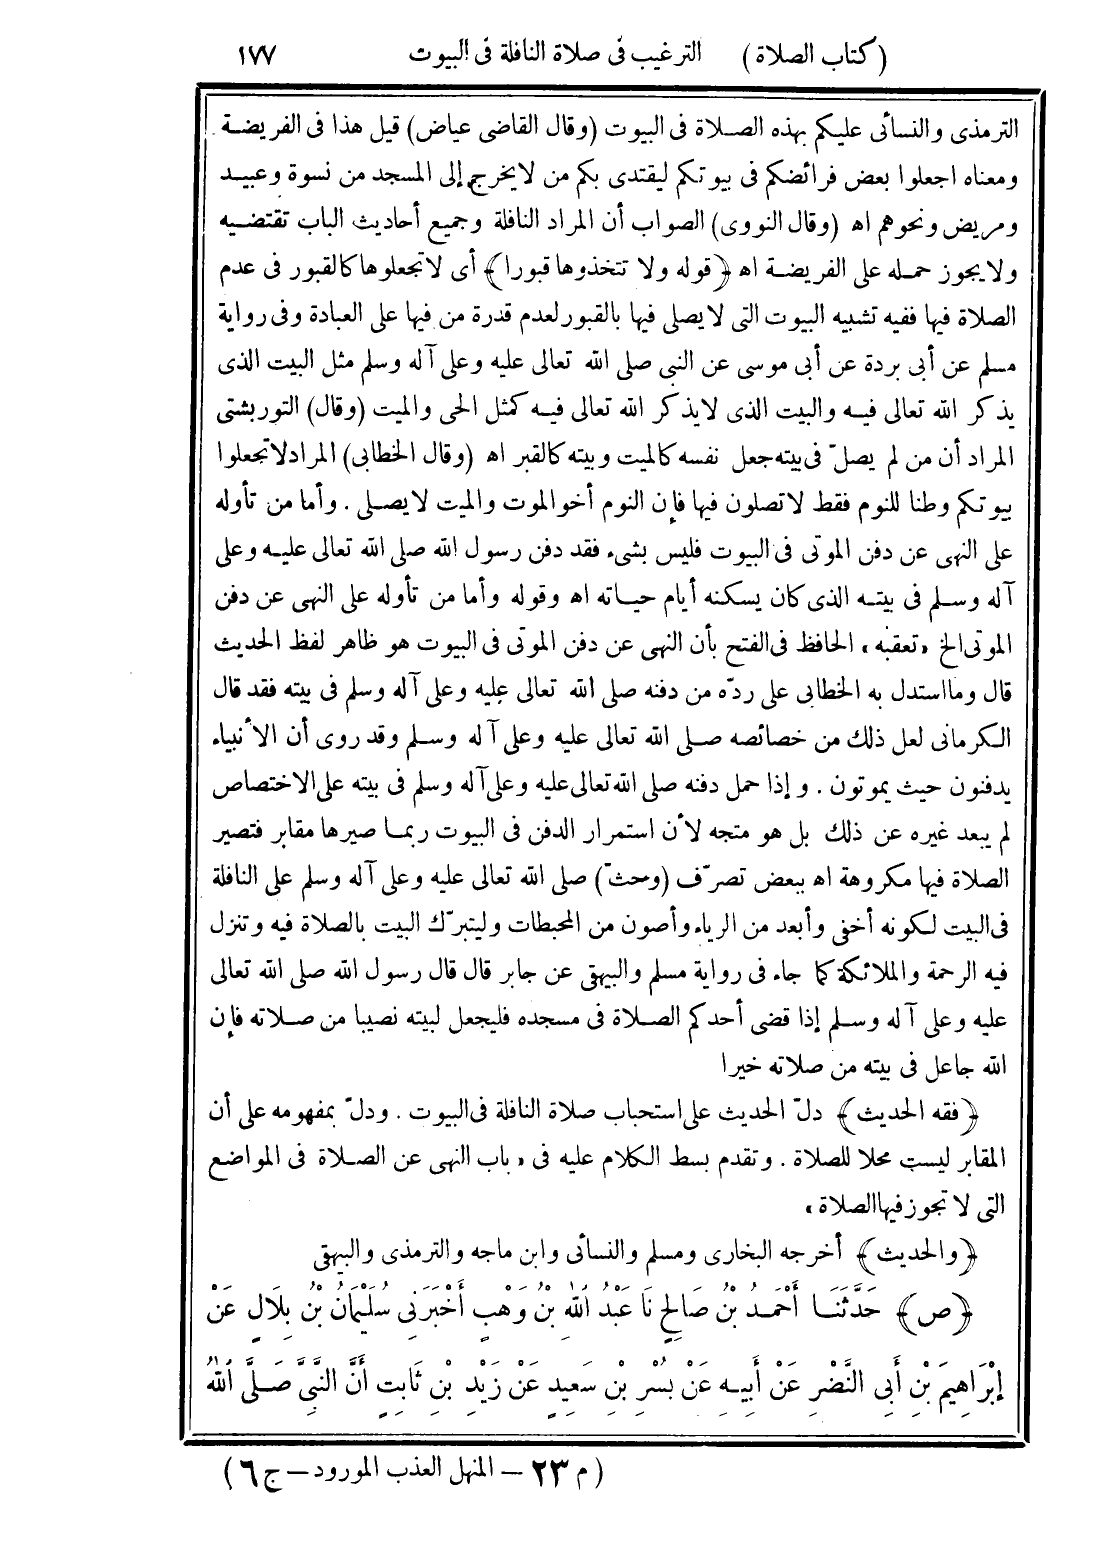 (كتاب الصلاة) الترغيب فى صلاة النافلة فى البيوت ١٧٧
الترمذى والنسائى عليكم بهذه الصلاة فى البيوت (وقال القاضى عياض) قيل هذا فى الفريضة
ومعناه اجعلوا بعض فرائضكم فى بيوتكم ليقتدى بكم من لا يخرج إلى المسجد من نسوة وعبيد
ومريض ونحوهم اه (وقال النووى) الصواب أن المراد النافلة وجميع أحاديث الباب تقتضيه
ولا يجوز حمله على الفريضة اه ﴿قوله ولا تتخذوها قبورا﴾ أى لا تجعلوها كالقبور فى عدم
الصلاة فيها ففيه تشبيه البيوت التى لا يصلى فيها بالقبور لعدم قدرة من فيها على العبادة وفى رواية
مسلم عن أبى بردة عن أبى موسى عن النبى صلى الله تعالى عليه وعلى آله وسلم مثل البيت الذى
يذكر الله تعالى فيه والبيت الذى لا يذكر الله تعالى فيه كمثل الحى والميت (وقال) التوربشتى
المراد أن من لم يصلّ فى بيته جعل نفسه كالميت وبيته كالقبر اه (وقال الخطابى) المراد لا تجعلوا
بيوتكم وطنا للنوم فقط لا تصلون فيها فإن النوم أخو الموت والميت لا يصلى . وأما من تأوله
على النهى عن دفن الموتى فى البيوت فليس بشىء فقد دفن رسول الله صلى الله تعالى عليه وعلى
آله وسلم فى بيته الذى كان يسكنه أيام حياته اه وقوله وأما من تأوله على النهى عن دفن
الموتى الخ «تعقبه» الحافظ فى الفتح بأن النهى عن دفن الموتى فى البيوت هو ظاهر لفظ الحديث
قال وما استدل به الخطابى على ردّه من دفنه صلى الله تعالى عليه وعلى آله وسلم فى بيته فقد قال
الكرمانى لعل ذلك من خصائصه صلى الله تعالى عليه وعلى آله وسلم وقد روى أن الأنبياء
يدفنون حيث يموتون . وإذا حمل دفنه صلى الله تعالى عليه وعلى آله وسلم فى بيته على الاختصاص
لم يبعد غيره عن ذلك بل هو متجه لأن استمرار الدفن فى البيوت ربما صيرها مقابر فتصير
الصلاة فيها مكروهة اه ببعض تصرّف (وحثّ) صلى الله تعالى عليه وعلى آله وسلم على النافلة
فى البيت لكونه أخفى وأبعد من الرياء وأصون من المحبطات وليتبرّك البيت بالصلاة فيه وتنزل
فيه الرحمة والملائكة كما جاء فى رواية مسلم والبيهقى عن جابر قال قال رسول الله صلى الله تعالى
عليه وعلى آله وسلم إذا قضى أحدكم الصلاة فى مسجده فليجعل لبيته نصيبا من صلاته فإن
الله جاعل فى بيته من صلاته خيرا
﴿فقه الحديث﴾ دلّ الحديث على استحباب صلاة النافلة فى البيوت . ودلّ بمفهومه على أن
المقابر ليست محلا للصلاة . وتقدم بسط الكلام عليه فى «باب النهى عن الصلاة فى المواضع
التى لا تجوز فيها الصلاة»
﴿والحديث﴾ أخرجه البخارى ومسلم والنسائى وابن ماجه والترمذى والبيهقى
﴿ص﴾ حَدَّثَنَا أَحْمَدُ بْنُ صَالِحٍ نَا عَبْدُ اللهِ بْنُ وَهْبٍ أَخْبَرَنِى سُلَيْمَانُ بْنُ بِلَالٍ عَنْ
إِبْرَاهِيمَ بْنِ أَبِى النَّضْرِ عَنْ أَبِيهِ عَنْ بُسْرِ بْنِ سَعِيدٍ عَنْ زَيْدِ بْنِ ثَابِتٍ أَنَّ النَّبِىَّ صَلَّى اللهُ
(م ٢٣ – المنهل العذب المورود – ج ٦)